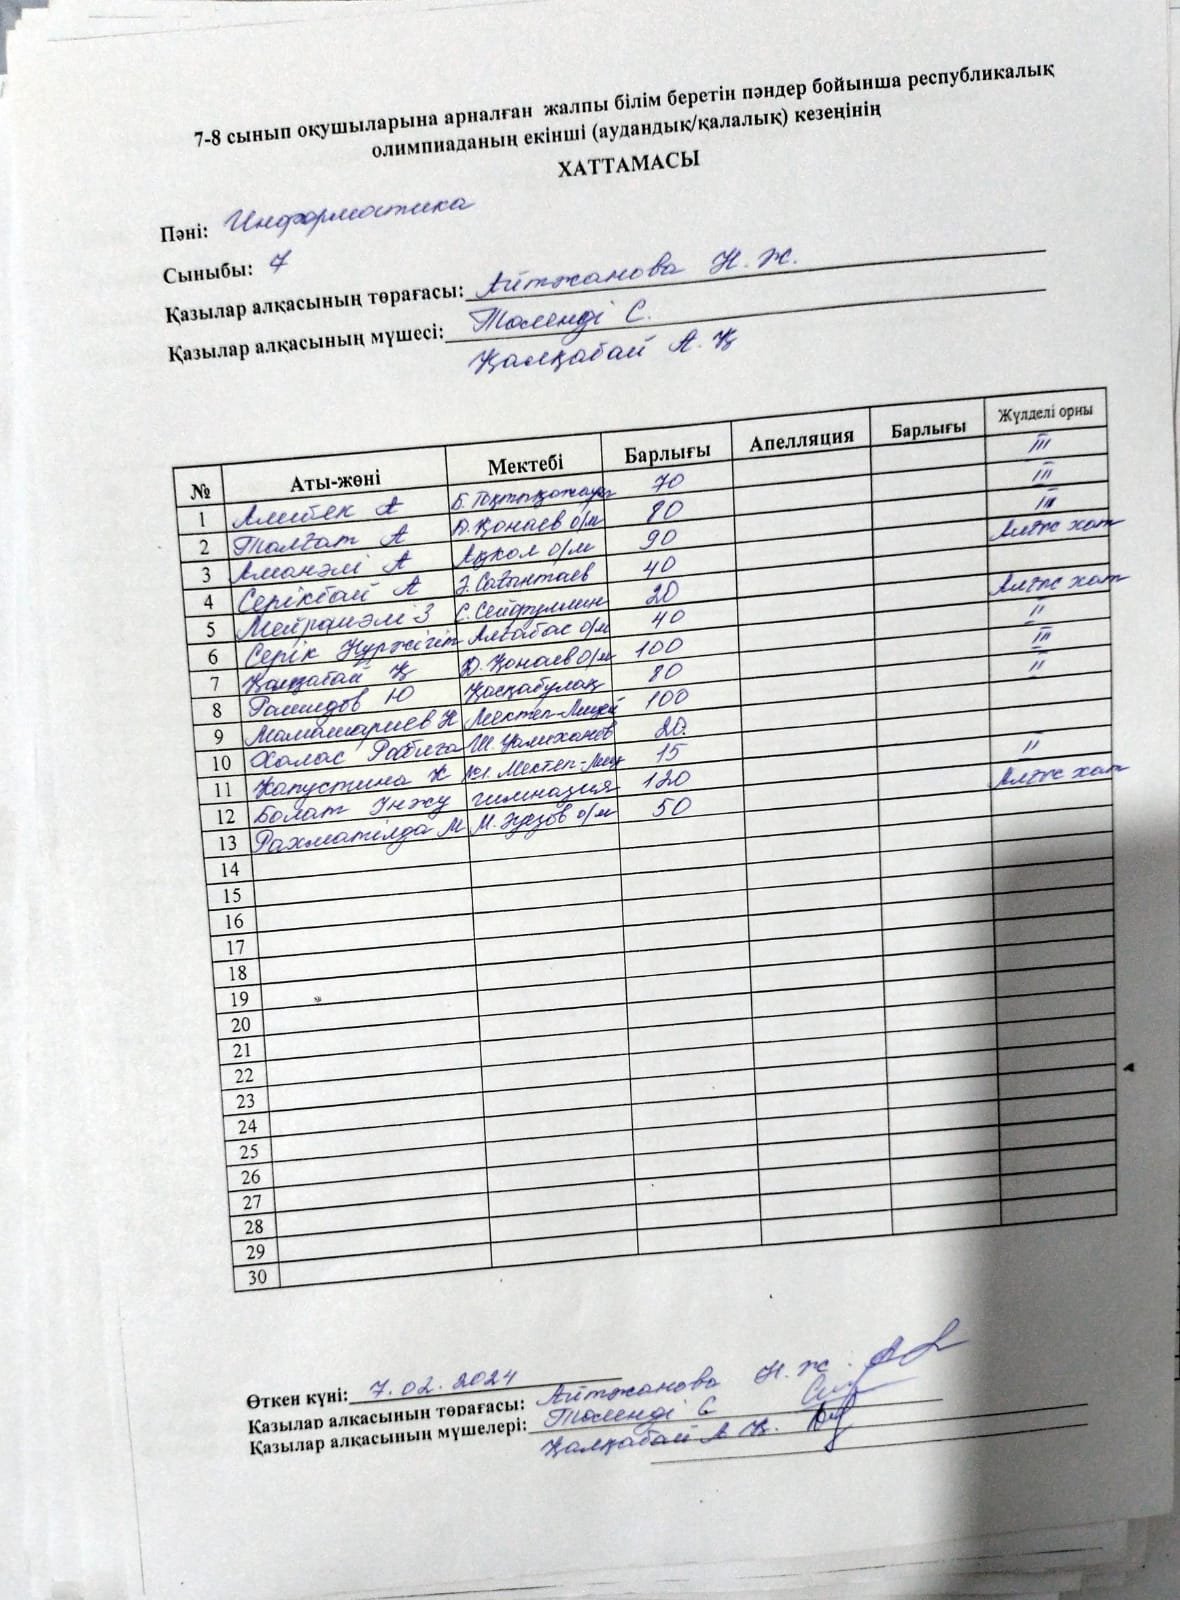 7-8 сынып оқушыларына арналған жалпы білім беретін пәндер бойынша республикалық
олимпиаданың екінші (аудандық/қалалық) кезеңінің
ХАТТАМАСЫ
Пәні: Информатика
Сыныбы: 7
Қазылар алқасының төрағасы: Айтжанова Н. Ж.
Қазылар алқасының мүшесі: Төленді С.
Қалқабай А. Қ
№ Аты-жөні Мектебі Барлығы Апелляция Барлығы Жүлделі орны
1 Алибек А Б. 70 III
2 Талғат А Д. Қонаев о/м 80 III
3 Аманәлі А Ақкөл о/м 90 III
4 Серікбай А Ә. Сағынтаев 40 Алғыс хат
5 Мейрамәлі З С. Сейфуллин 20
6 Серік Нұржігіт Алғабас о/м 40 Алғыс хат
7 Қалқабай Қ Д. Қонаев о/м 100 II
8 Рашидов Ю Қасқабулақ 80 III
9 Мамашариев Н Мектеп-Лицей 100 II
10 Халас Рабиға Ш. Уалиханов 20
11 Капустина К №1. Мектеп-Лиц 15
12 Болат Інжу гимназия 120 II
13 Рахматілда М М. Әуезов о/м 50 Алғыс хат
14
15
16
17
18
19
20
21
22
23
24
25
26
27
28
29
30
Өткен күні: 7.02.2024
Қазылар алқасының төрағасы: Айтжанова Н. Ж.
Қазылар алқасының мүшелері: Төленді С
Қалқабай А Қ.